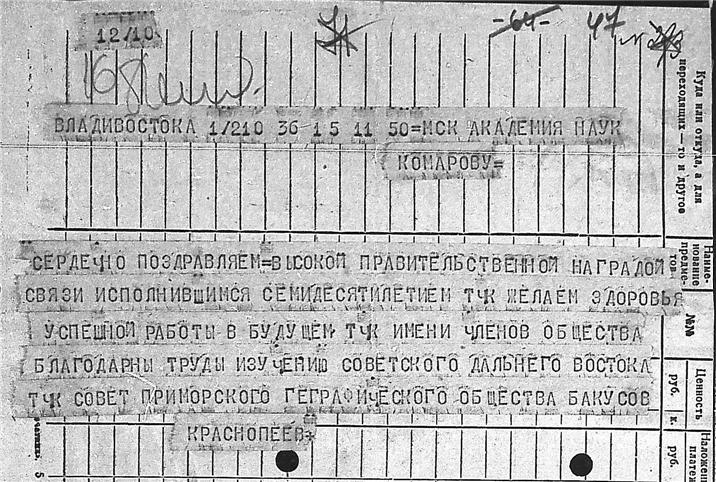 12/10
-64- 47
ВЛАДИВОСТОКА 1/210 36 15 11 50=МСК АКАДЕМИЯ НАУК
КОМАРОВУ=
СЕРДЕЧНО ПОЗДРАВЛЯЕМ=ВЫСОКОЙ ПРАВИТЕЛЬСТВЕННОЙ НАГРАДОЙ
СВЯЗИ ИСПОЛНИВШИМСЯ СЕМИДЕСЯТИЛЕТИЕМ ТЧК ЖЕЛАЕМ ЗДОРОВЬЯ
УСПЕШНОЙ РАБОТЫ В БУДУЩЕМ ТЧК ИМЕНИ ЧЛЕНОВ ОБЩЕСТВА
БЛАГОДАРНЫ ТРУДЫ ИЗУЧЕНИЮ СОВЕТСКОГО ДАЛЬНЕГО ВОСТОКА
ТЧК СОВЕТ ПРИМОРСКОГО ГЕГРАФИЧЕСКОГО ОБЩЕСТВА БАКУСОВ
КРАСНОПЕЕВ=
Куда или откуда, а для
переходящих — то и другое
Наиме-
нование
предме-
тов
№№
Ценность
руб. к.
Наложен
платеж
руб.
5